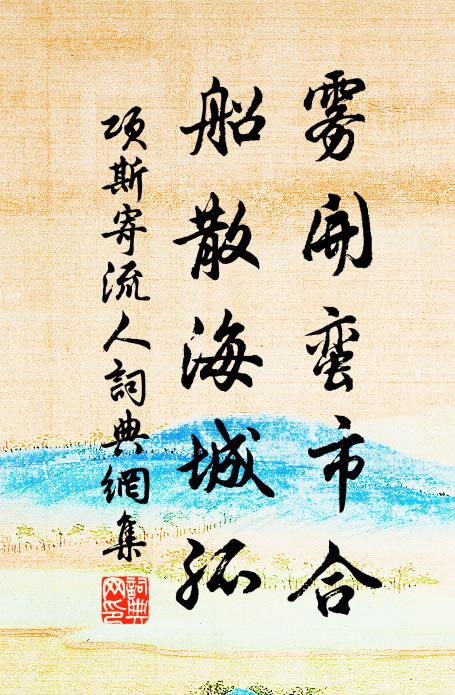 雾開蛮市合
船散海城孤
項斯寄流人詞典網集
詞典网印